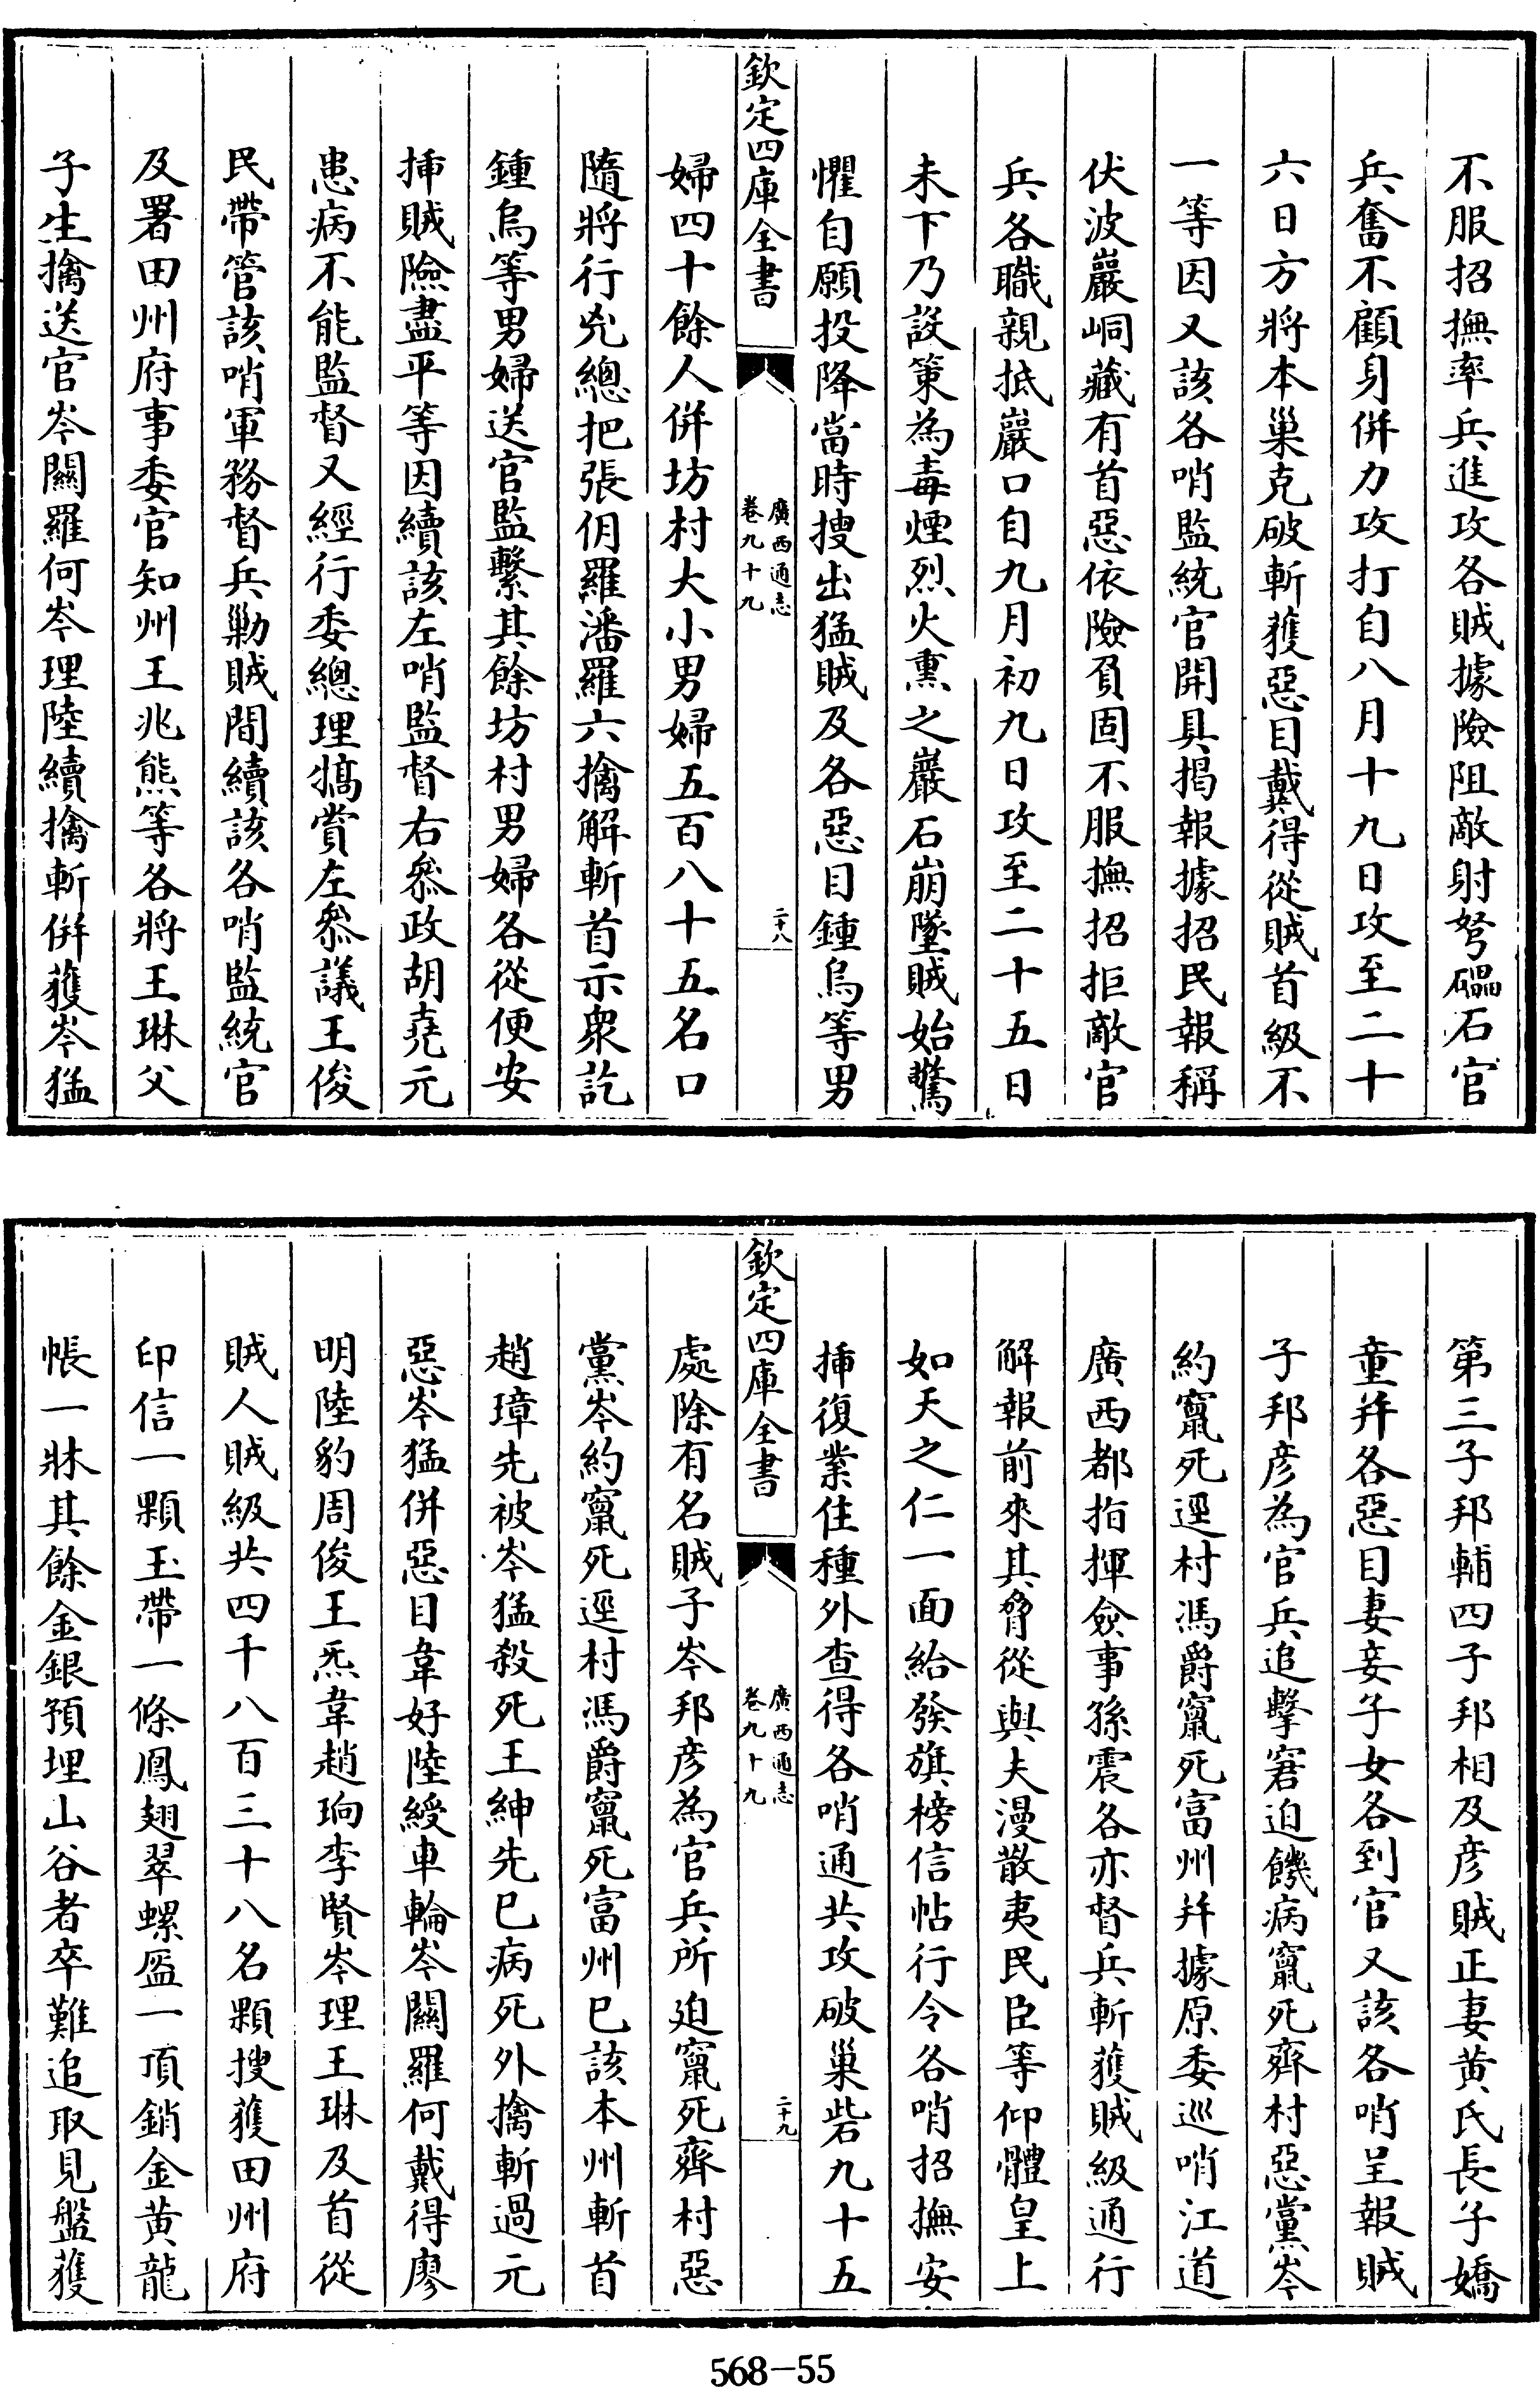 不服招撫率兵進攻各賊據險阻敵射弩礧石官
兵奮不顧身併力攻打自八月十九日攻至二十
六日方將本巢克破斬獲惡目戴得從賊首級不
一等因又該各哨監統官開具揭報據招民報稱
伏波巖峒藏有首惡依險負固不服撫招拒敵官
兵各職親抵巖口自九月初九日攻至二十五日
未下乃設策為毒煙烈火熏之巖石崩墜賊始驚
懼自願投降當時搜出猛賊及各惡目鍾烏等男
欽定四庫全書
廣西通志
卷九十九
二十八
婦四十餘人併坊村大小男婦五百八十五名口
隨將行兇總把張佣羅潘羅六擒解斬首示衆訖
鍾烏等男婦送官監繫其餘坊村男婦各從便安
插賊險盡平等因續該左哨監督右叅政胡堯元
患病不能監督又經行委總理犒賞左叅議王俊
民帶管該哨軍務督兵勦賊間續該各哨監統官
及署田州府事委官知州王兆熊等各將王琳父
子生擒送官岑關羅何岑理陸續擒斬併獲岑猛
第三子邦輔四子邦相及彦賊正妻黄氏長子嬌
童并各惡目妻妾子女各到官又該各哨呈報賊
子邦彦為官兵追擊窘迫饑病竄死齊村惡黨岑
約竄死逕村馮爵竄死富州并據原委巡哨江道
廣西都指揮僉事孫震各亦督兵斬獲賊級通行
解報前來其脅從與夫漫散夷民臣等仰體皇上
如天之仁一面給發旗榜信帖行令各哨招撫安
插復業住種外查得各哨通共攻破巢砦九十五
欽定四庫全書
廣西通志
卷九十九
二十九
處除有名賊子岑邦彦為官兵所廹竄死齊村惡
黨岑約竄死逕村馮爵竄死富州巳該本州斬首
趙璋先被岑猛殺死王紳先巳病死外擒斬過元
惡岑猛併惡目韋好陸綬車輪岑關羅何戴得廖
明陸豹周俊王炁韋趙珦李賢岑理王琳及首從
賊人賊級共四千八百三十八名顆搜獲田州府
印信一顆玉帶一條鳳翅翠螺盔一頂銷金黄龍
帳一牀其餘金銀預埋山谷者卒難追取見盤獲
568-55